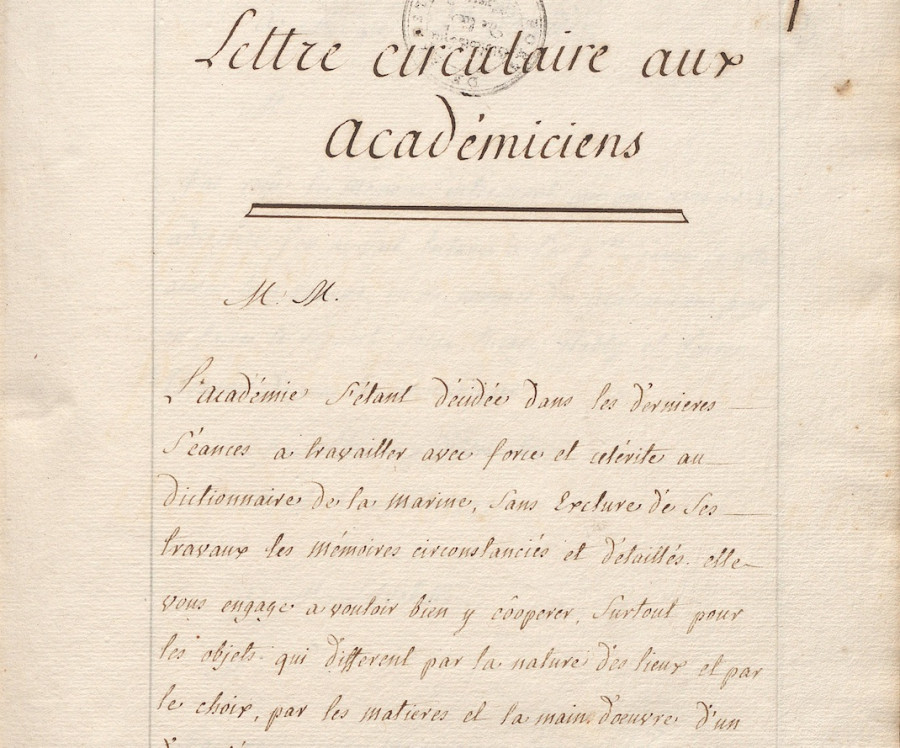 Lettre circulaire aux
académiciens
M. M.
L'académie s'étant décidée dans les dernieres
Séances a travailler avec force et celérite au
dictionnaire de la marine, sans Exclure de ses
travaux les mémoires circonstanciés et détaillés. elle
vous engage a vouloir bien y coöperer, surtout pour
les objets qui different par la nature des lieux et par
le choix, par les matieres et la main d'oeuvre d'un